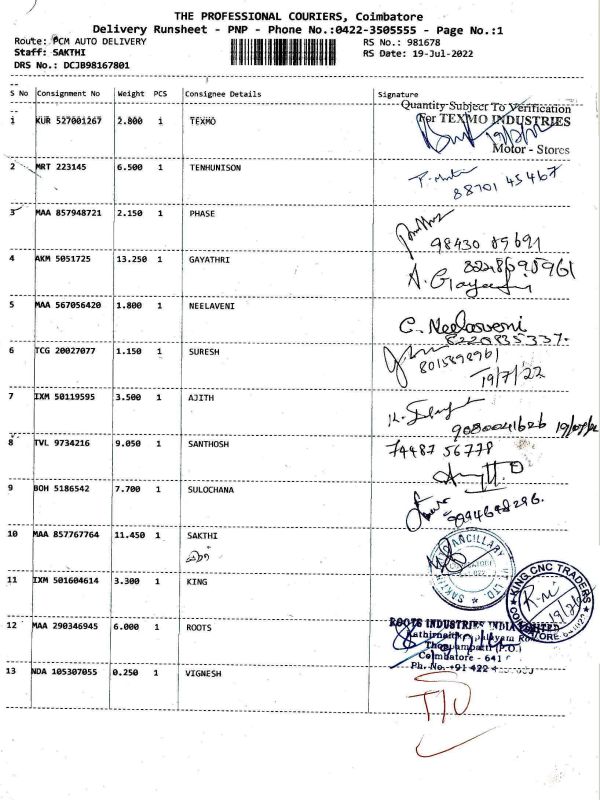 THE PROFESSIONAL COURIERS, Coimbatore
Delivery Runsheet - PNP - Phone No.:0422-3505555 - Page No.:1
Route: PCM AUTO DELIVERY RS No.: 981678
Staff: SAKTHI RS Date: 19-Jul-2022
DRS No.: DCJB98167801
S No Consignment No Weight PCS Consignee Details Signature
Quantity Subject To Verification
1 KUR 527001267 2.800 1 TEXMO For TEXMO INDUSTRIES
Motor - Stores
2 MRT 223145 6.500 1 TENHUNISON
88701 45467
3 MAA 857948721 2.150 1 PHASE
98430 89691
4 AKM 5051725 13.250 1 GAYATHRI
A. Gayathri
5 MAA 567056420 1.800 1 NEELAVENI C. Neelaveni
8220835337.
6 TCG 20027077 1.150 1 SURESH
8015898961
19/7/22
7 IXM 50119595 3.500 1 AJITH
9080041626
8 TVL 9734216 9.050 1 SANTHOSH 74487 56778
9 BOH 5186542 7.700 1 SULOCHANA
9994698296.
10 MAA 857767764 11.450 1 SAKTHI
ANCILLARY
11 IXM 501604614 3.300 1 KING
KING CNC TRADERS
12 MAA 290346945 6.000 1 ROOTS ROOTS INDUSTRIES INDIA LIMITED
Thoppampatti (P.O.)
Coimbatore - 641
Ph. No. +91 422
13 NDA 105307055 0.250 1 VIGNESH